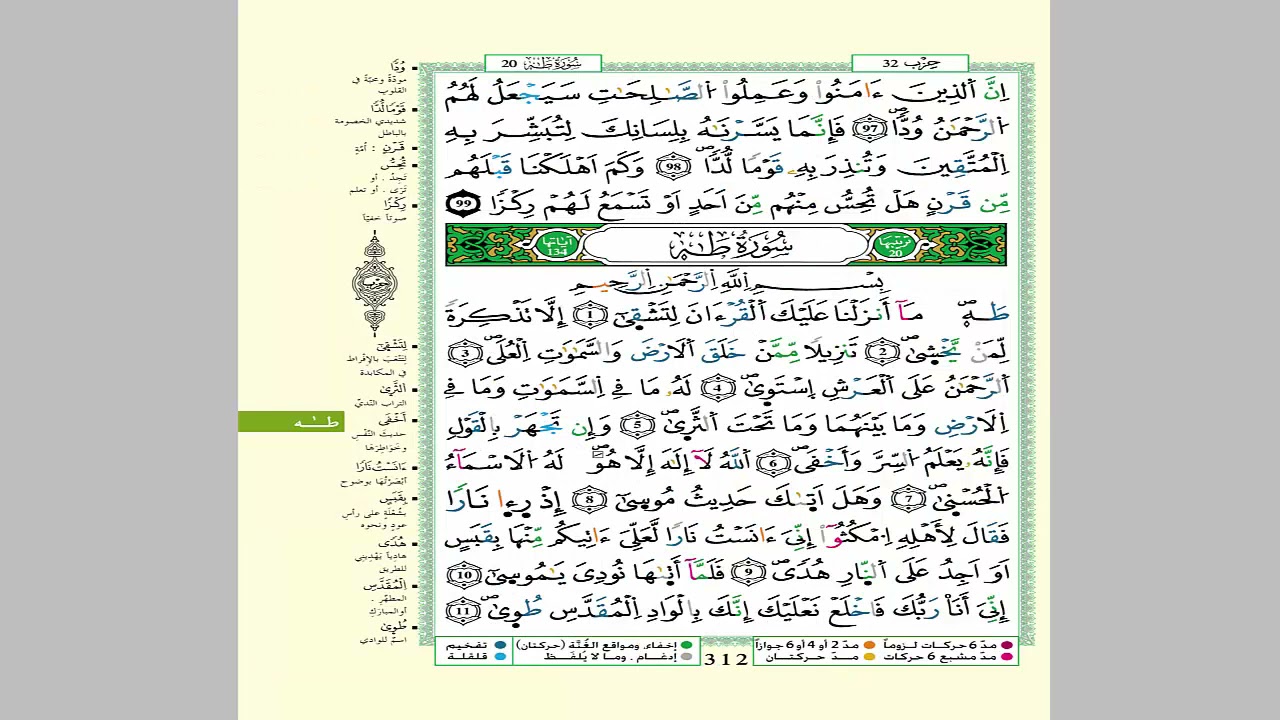 حِزْب 32
سُورَةُ طَهَ 20
إِنَّ اَ۬لذِينَ ءَامَنُواْ وَعَمِلُواْ اُ۬لصَّٰلِحَٰتِ سَيَجْعَلُ لَهُمُ
اُ۬لرَّحْمَٰنُ وُدّاٗۖ 97 فَإِنَّمَا يَسَّرْنَٰهُ بِلِسَانِكَ لِتُبَشِّرَ بِهِ
اِ۬لْمُتَّقِينَ وَتُنذِرَ بِهِۦ قَوْماٗ لُّدّاٗۖ 98 وَكَمَ اَهْلَكْنَا قَبْلَهُم
مِّن قَرْنٍ هَلْ تُحِسُّ مِنْهُم مِّنَ اَحَدٍ اَوْ تَسْمَعُ لَهُمْ رِكْزاٗ 99
ترتيبها 20
سُورَةُ طَهَ
آياتها 134
بِسْمِ اِ۬للَّهِ اِ۬لرَّحْمَٰنِ اِ۬لرَّحِيمِ
طَهِۖ مَآ أَنزَلْنَا عَلَيْكَ اَ۬لْقُرْءَانَ لِتَشْق۪يٰٓ 1 إِلَّا تَذْكِرَةٗ
لِّمَنْ يَّخْش۪يٰۖ 2 تَنزِيلاٗ مِّمَّنْ خَلَقَ اَ۬لَارْضَ وَالسَّمَٰوَٰتِ اِ۬لْعُلَيۖ 3
اَ۬لرَّحْمَٰنُ عَلَي اَ۬لْعَرْشِ اِ۪سْتَو۪يٰۖ 4 لَهُۥ مَا فِے اِ۬لسَّمَٰوَٰتِ وَمَا فِے
اِ۬لَارْضِ وَمَا بَيْنَهُمَا وَمَا تَحْتَ اَ۬لثَّر۪يٰۖ 5 وَإِن تَجْهَرْ بِالْقَوْلِ
فَإِنَّهُۥ يَعْلَمُ اُ۬لسِّرَّ وَأَخْفَيۖ 6 اَ۬للَّهُ لَآ إِلَٰهَ إِلَّا هُوَۖ لَهُ اُ۬لَاسْمَآءُ
اُ۬لْحُسْن۪يٰۖ 7 وَهَلَ اَت۪يٰكَ حَدِيثُ مُوس۪يٰٓ 8 إِذْ ر۪ء۪ا نَاراٗ
فَقَالَ لِأَهْلِهِ اِ۟مْكُثُوٓاْ إِنِّيَ ءَانَسْتُ نَاراٗ لَّعَلِّيَ ءَاتِيكُم مِّنْهَا بِقَبَسٍ
اَوَ اَجِدُ عَلَي اَ۬لنّ۪ارِ هُديٗۖ 9 فَلَمَّآ أَت۪يٰهَا نُودِيَ يَٰمُوس۪يٰٓ 10
إِنِّيَ أَنَا رَبُّكَ فَاخْلَعْ نَعْلَيْكَ إِنَّكَ بِالْوَادِ اِ۬لْمُقَدَّسِ طُو۪يٰۖ 11
وُدّاً
مودّة ومحبّة في
القلوب
قَوْماً لُّدّاً
شديدي الخصومة
بالباطل
قَرْنٍ : أمّةٍ
تُحِسُّ
تَجِدُ . أو
تَرَى . أو تعلم
رِكْزاً
صوتاً خفيّاً
حزب
لِتَشْقَى
لِتتعَبَ بالإفراط
في المكابدة
الثَّرَى
التراب النَّديّ
أَخْفَى
حديثَ النَّفْسِ
وخَوَاطِرَهَا
طه
ءَانَسْتُ نَاراً
أَبْصَرْتُهَا بوضوح
بِقَبَسٍ
بشُعْلَةٍ على رأسِ
عودٍ ونحوه
هُدًى
هادِياً يَهْدِيني
للطريق
الْمُقَدَّسِ
المطهَّرِ .
أو المباركِ
طُوىٰ
اسمٌ للوادي
مدّ 6 حركات لزوماً مدّ 2 أو 4 أو 6 جوازاً
مدّ مشبع 6 حركات مدّ حركتان
312
إخفاء، ومواقع الغُنَّة (حركتان) تفخيم
إدغام . وما لا يُلفَظ قلقلة